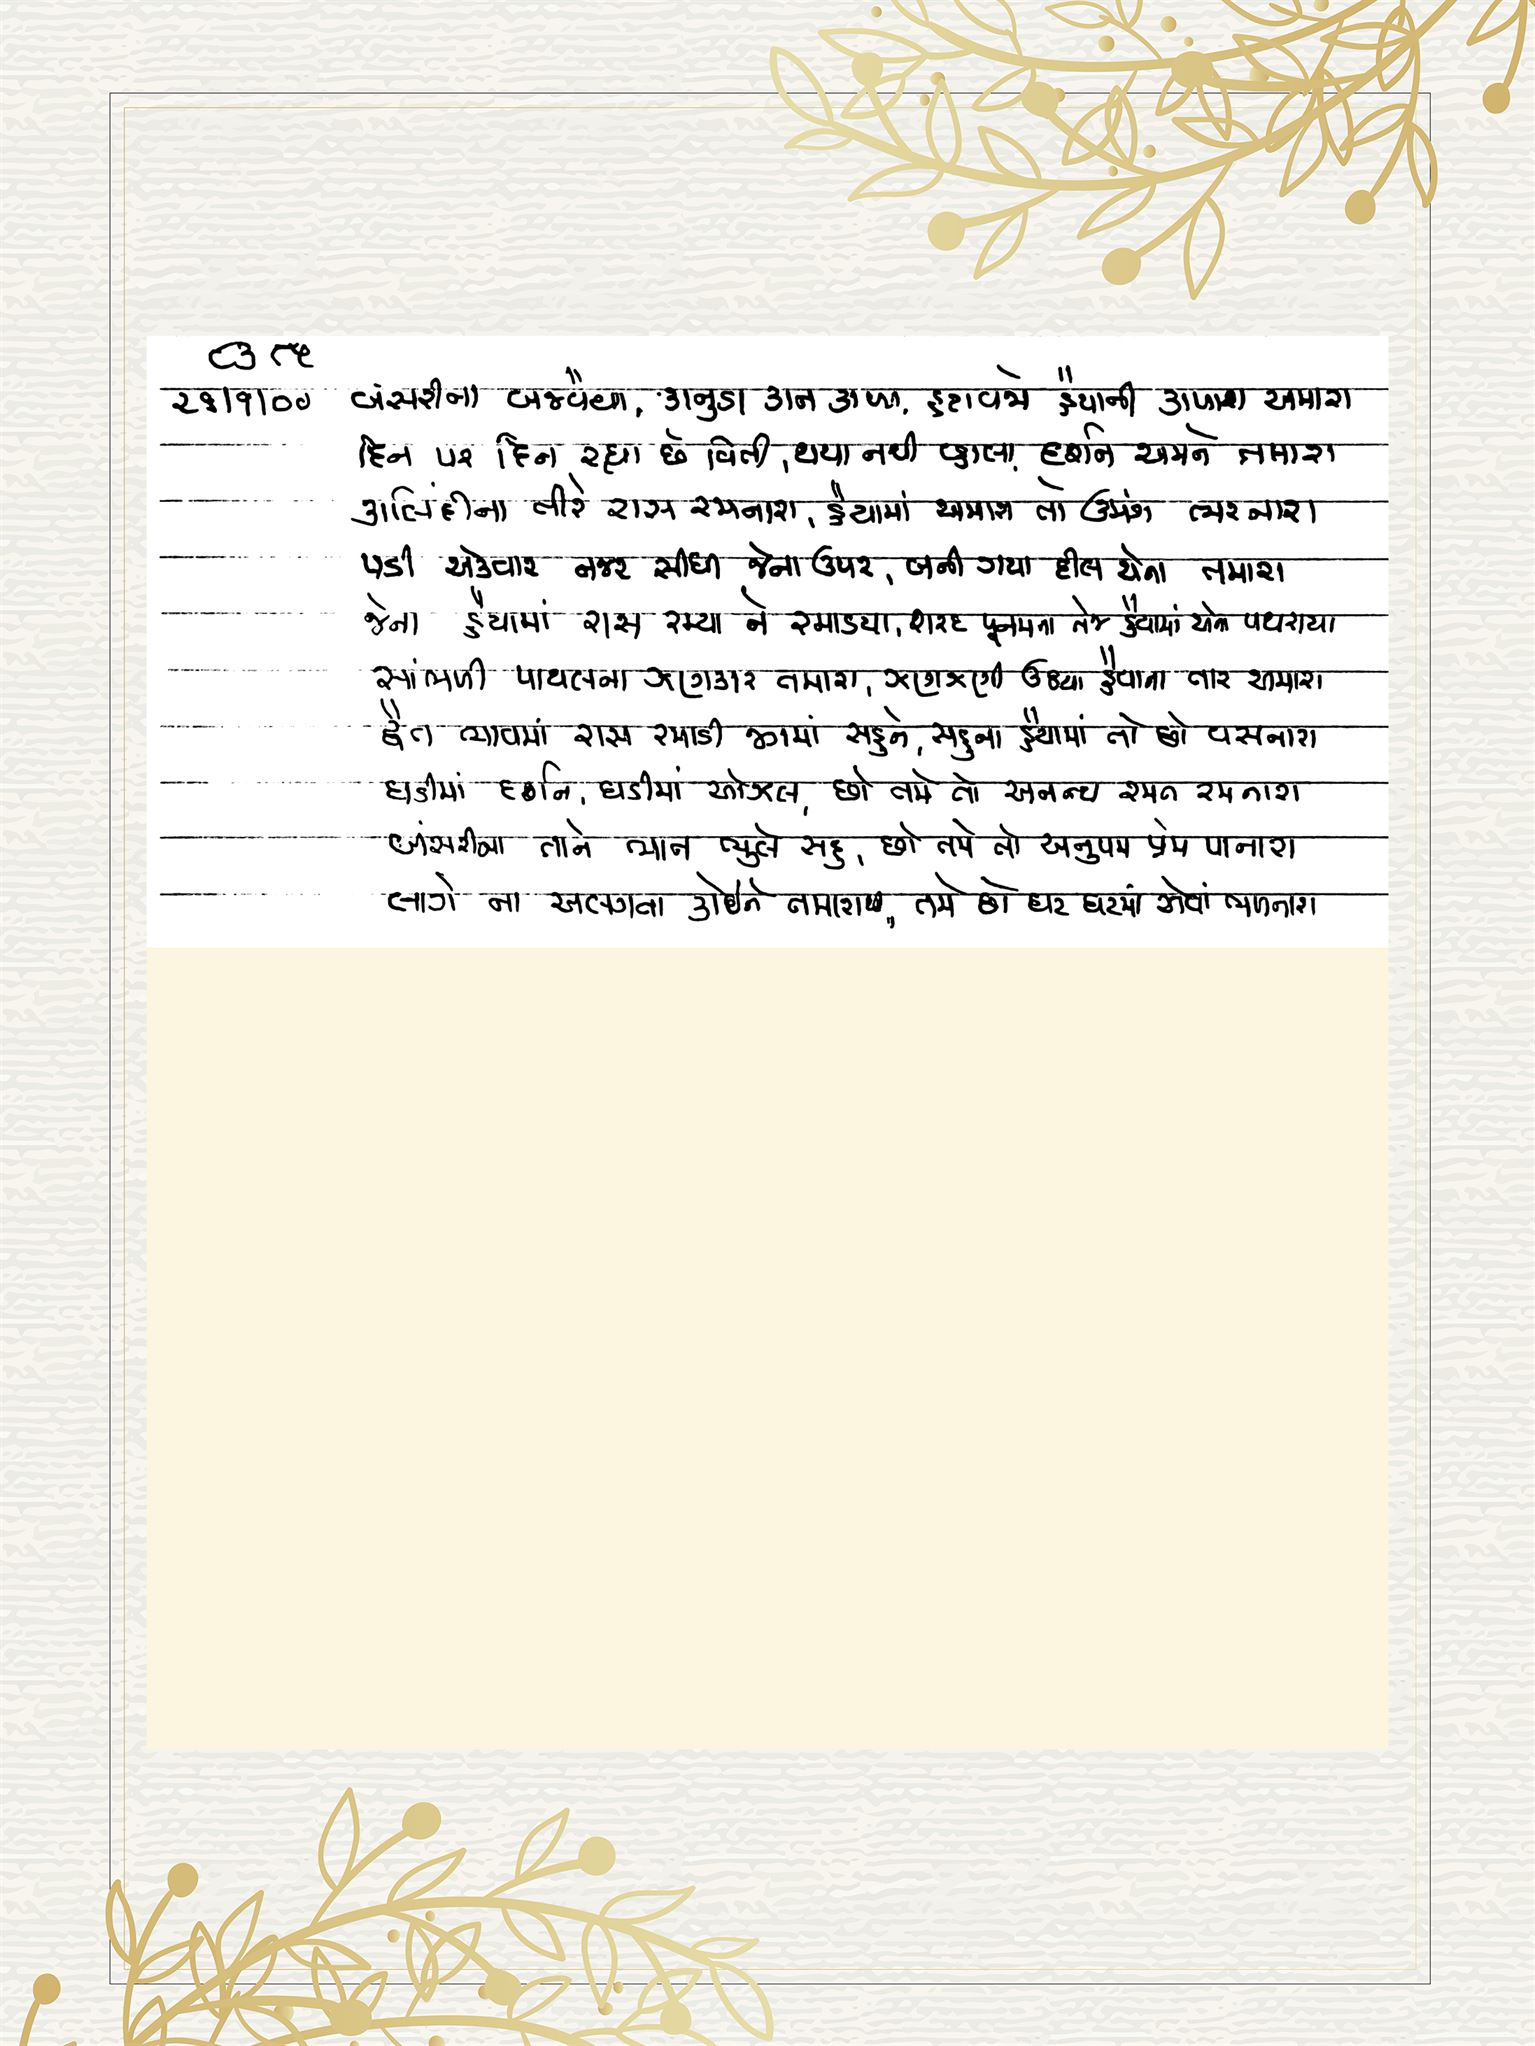 ૮૩૯૬
૨૭/૧/૦૦ બંસરીના બજવૈયા, કાનુડા કાન કાળા, હટાવજો હૈયાની કાળાશ અમારા
દિન પર દિન રહ્યા છે વિતી, થયા નથી વ્હાલા, દર્શન અમને તમારા
કાલિંદીના તીરે રાસ રમનારા, હૈયામાં અમારા તો ઉમંગ ભરનારા
પડી એકવાર નજર સીધી જેના ઉપર, બની ગયા દીલ એના તમારા
જેના હૈયામાં રાસ રમ્યા ને રમાડયા, શરદ પૂનમના તેજ હૈયામાં એના પથરાયા
સાંભળી પાયલના ઝણકાર તમારા, ઝણઝણી ઉઠયા હૈયાના તાર અમારા
દ્વૈત ભાવમાં રાસ રમાડી જગમાં સહુને, સહુના હૈયામાં તો છો વસનારા
ઘડીમાં દર્શન, ઘડીમાં ઓઝલ, છો તમે તો અનન્ય રમત રમનારા
બંસરીના તાને ભાન ભુલે સહુ, છો તમે તો અનુપમ પ્રેમ પાનારા
લાગે ના અલગતા કોઈને તમારામાં, તમે છો ઘર ઘરમાં એવાં ભળનારા